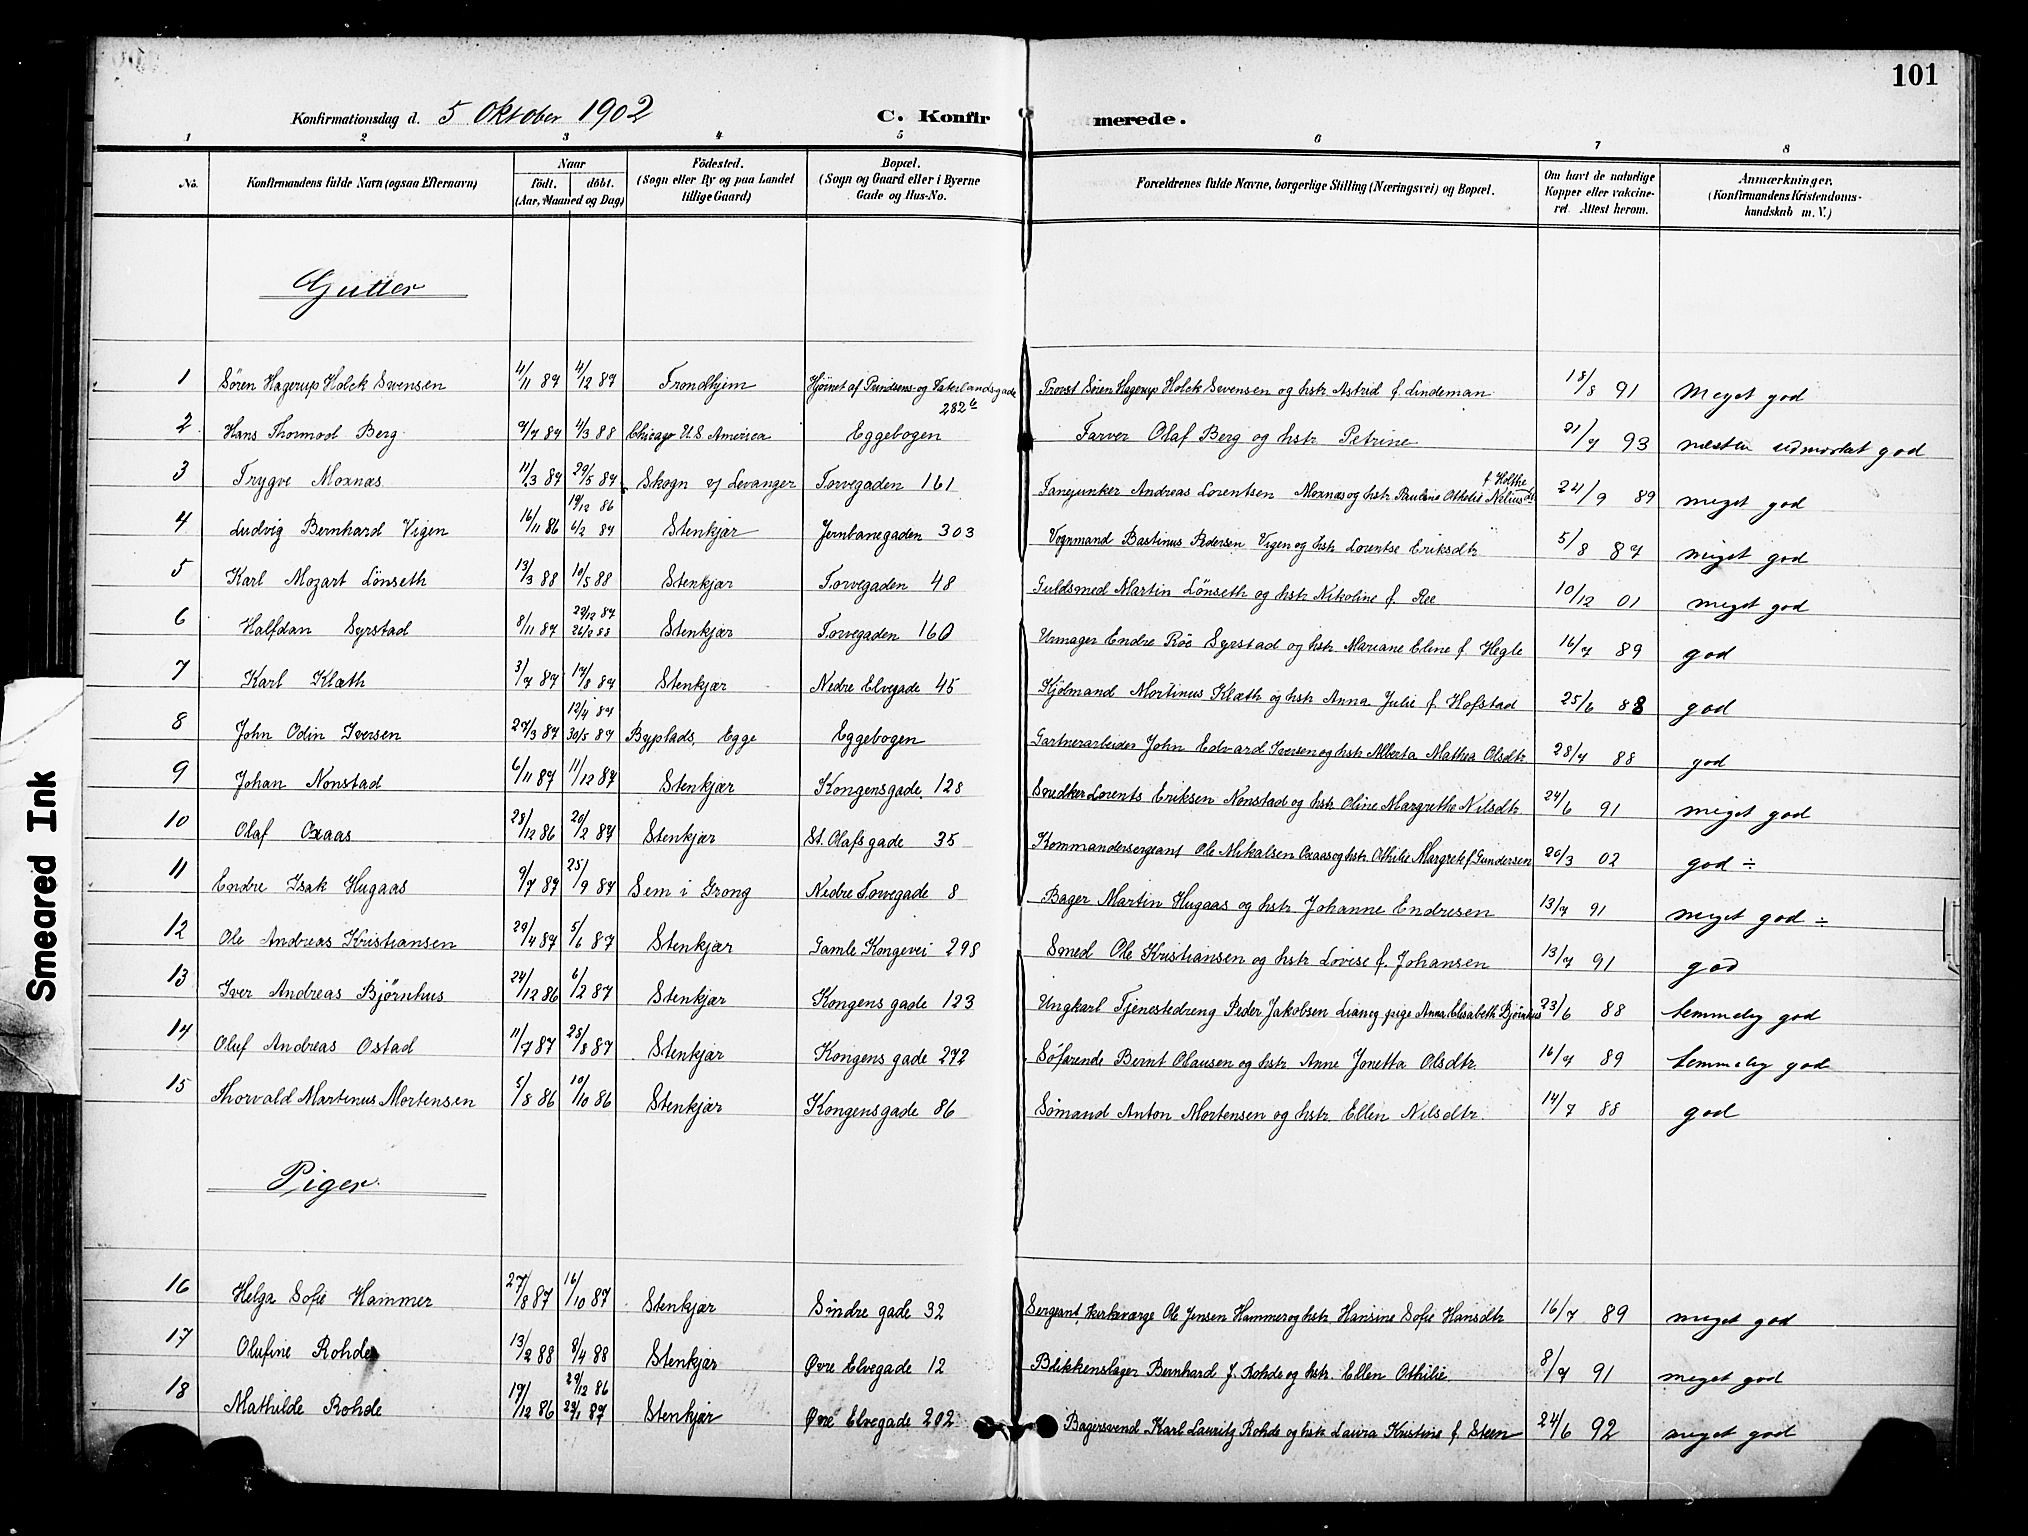 101
Konfirmationsdag d. 5 Oktober 1902 C. Konfirmerede.
1 2 3 4 5 6 7 8
No. Konfirmandens fulde Navn (ogsaa Efternavn) Naar født. døbt. (Aar, Maaned og Dag) Födested. (Sogn eller By og paa Landet tillige Gaard) Bopæl. (Sogn og Gaard eller i Byerne Gade og Hus-No. Forældrenes fulde Navne, borgerlige Stilling (Næringsvei) og Bopæl. Om havt de naturlige Kopper eller vakcineret. Attest herom. Anmærkninger. (Konfirmandens Kristendomskundskab m. V.)
Gutter
1 Søren Hagerup Holck Svensen 4/11 87 4/12 87 Trondhjem Hjörnet af og Faterlandsgade 282 b Provst Søren Hagerup Holck Svensen og hstr Astrid f. Lindeman 18/8 91 Meget god
2 Hans Thormod Berg 9/7 87 4/3 88 Chicago U.S. America Eggebogen Farver Olaf Berg og hstr Petrine 21/7 93 næsten udmærket god
3 Trygve Moxnæs 11/3 87 29/5 87 Skogn v/ Levanger Torvegaden 161 Fanejunker Andreas Lorentsen Moxnæs og hstr Pauline Othelie f Holthe 24/9 89 meget god
4 Ludvig Bernhard Vigen 16/11 86 19/12 86 6/2 87 Stenkjær Jernbanegaden 303 Vognmand Bastinus Pedersen Vigen og hstr Lorentse Eriksdtr 5/8 87 meget god
5 Karl Mozart Lønseth 13/3 88 10/5 88 Stenkjær Torvegaden 48 Guldsmed Martin Lönseth og hstr Nikoline f. Ree 10/12 01 meget god
6 Halfdan Syrstad 8/11 87 29/12 87 26/2 88 Stenkjær Torvegaden 160 Urmager Endre Röe Syrstad og hstr Mariane Eline f. Hegle 16/7 89 god
7 Karl Klæth 3/7 87 17/8 87 Stenkjær Nedre Elvegade 45 Kjölmand Mortinus Klæth og hstr Anna Julie f. Hofstad 25/6 88 god
8 John Odin Iversen 27/3 87 12/4 87 30/5 87 Byplads, Egge Eggebogen Gartnerarbeider John Edvard Iversen og hstr Alberta Mathea Olsdtr 28/7 88 god
9 Johan Nonstad 6/11 87 11/12 87 Stenkjær Kongensgade 128 Snedker Lorents Eriksen Nonstad og hstr Oline Margrethe Nilsdtr 24/6 91 meget god
10 Olaf Oxaas 28/12 86 20/2 87 Stenkjær St. Olafs gade 35 Kommandersergeant Ole Mikalsen Oxaas og hstr Othilie Margret f. Gundersen 20/3 02 god ÷
11 Endre Isak Hugaas 9/7 87 25/9 87 Sem i Grong Nedre Torvegade 8 Bager Martin Hugaas og hstr Johanne Endresen 13/7 91 meget god ÷
12 Ole Andreas Kristiansen 29/4 87 5/6 87 Stenkjær Gamle Kongevei 298 Smed Ole Kristiansen og hstr Lovise f. Johansen 13/7 91 god
13 Iver Andreas Bjørnhus 24/12 86 6/2 87 Stenkjær Kongens gade 123 Ungkarl Tjenestedreng Peder Jakobsen og pige Anna Elisabeth Bjørnhus 23/6 88 temmelig god
14 Oluf Andreas Ostad 11/7 87 28/8 87 Stenkjær Kongens gade 272 Söfarende Bernt Olausen og hstr. Anne Jonetta Olsdtr. 16/7 89 temmelig god
15 Thorvald Martinus Mortensen 5/8 86 10/10 86 Stenkjær Kongensgade 86 Sömand Anton Mortensen og hstr. Ellen Nilsdtr. 14/7 88 god
Piger
16 Helga Sofie Hammer 27/8 87 16/10 87 Stenkjær Söndre gade 32 Sergeant, kirkeværge Ole Jensen Hammer og hstr. Hansine Sofie Hansdtr 16/7 89 meget god
17 Olufine Rohde 13/2 88 8/4 88 Stenkjær Øvre Elvegade 12 Blikkenslager Bernhard J. Rohde og hstr. Ellen Othilie 8/7 91 meget god
18 Mathilde Rohde 19/12 86 29/12 86 29/1 87 Stenkjær Øvre Elvegade 202 Bagersvend Karl Lauritz Rohde og hstr Laura Kristine f. Steen 24/6 92 meget god
Smeared Ink